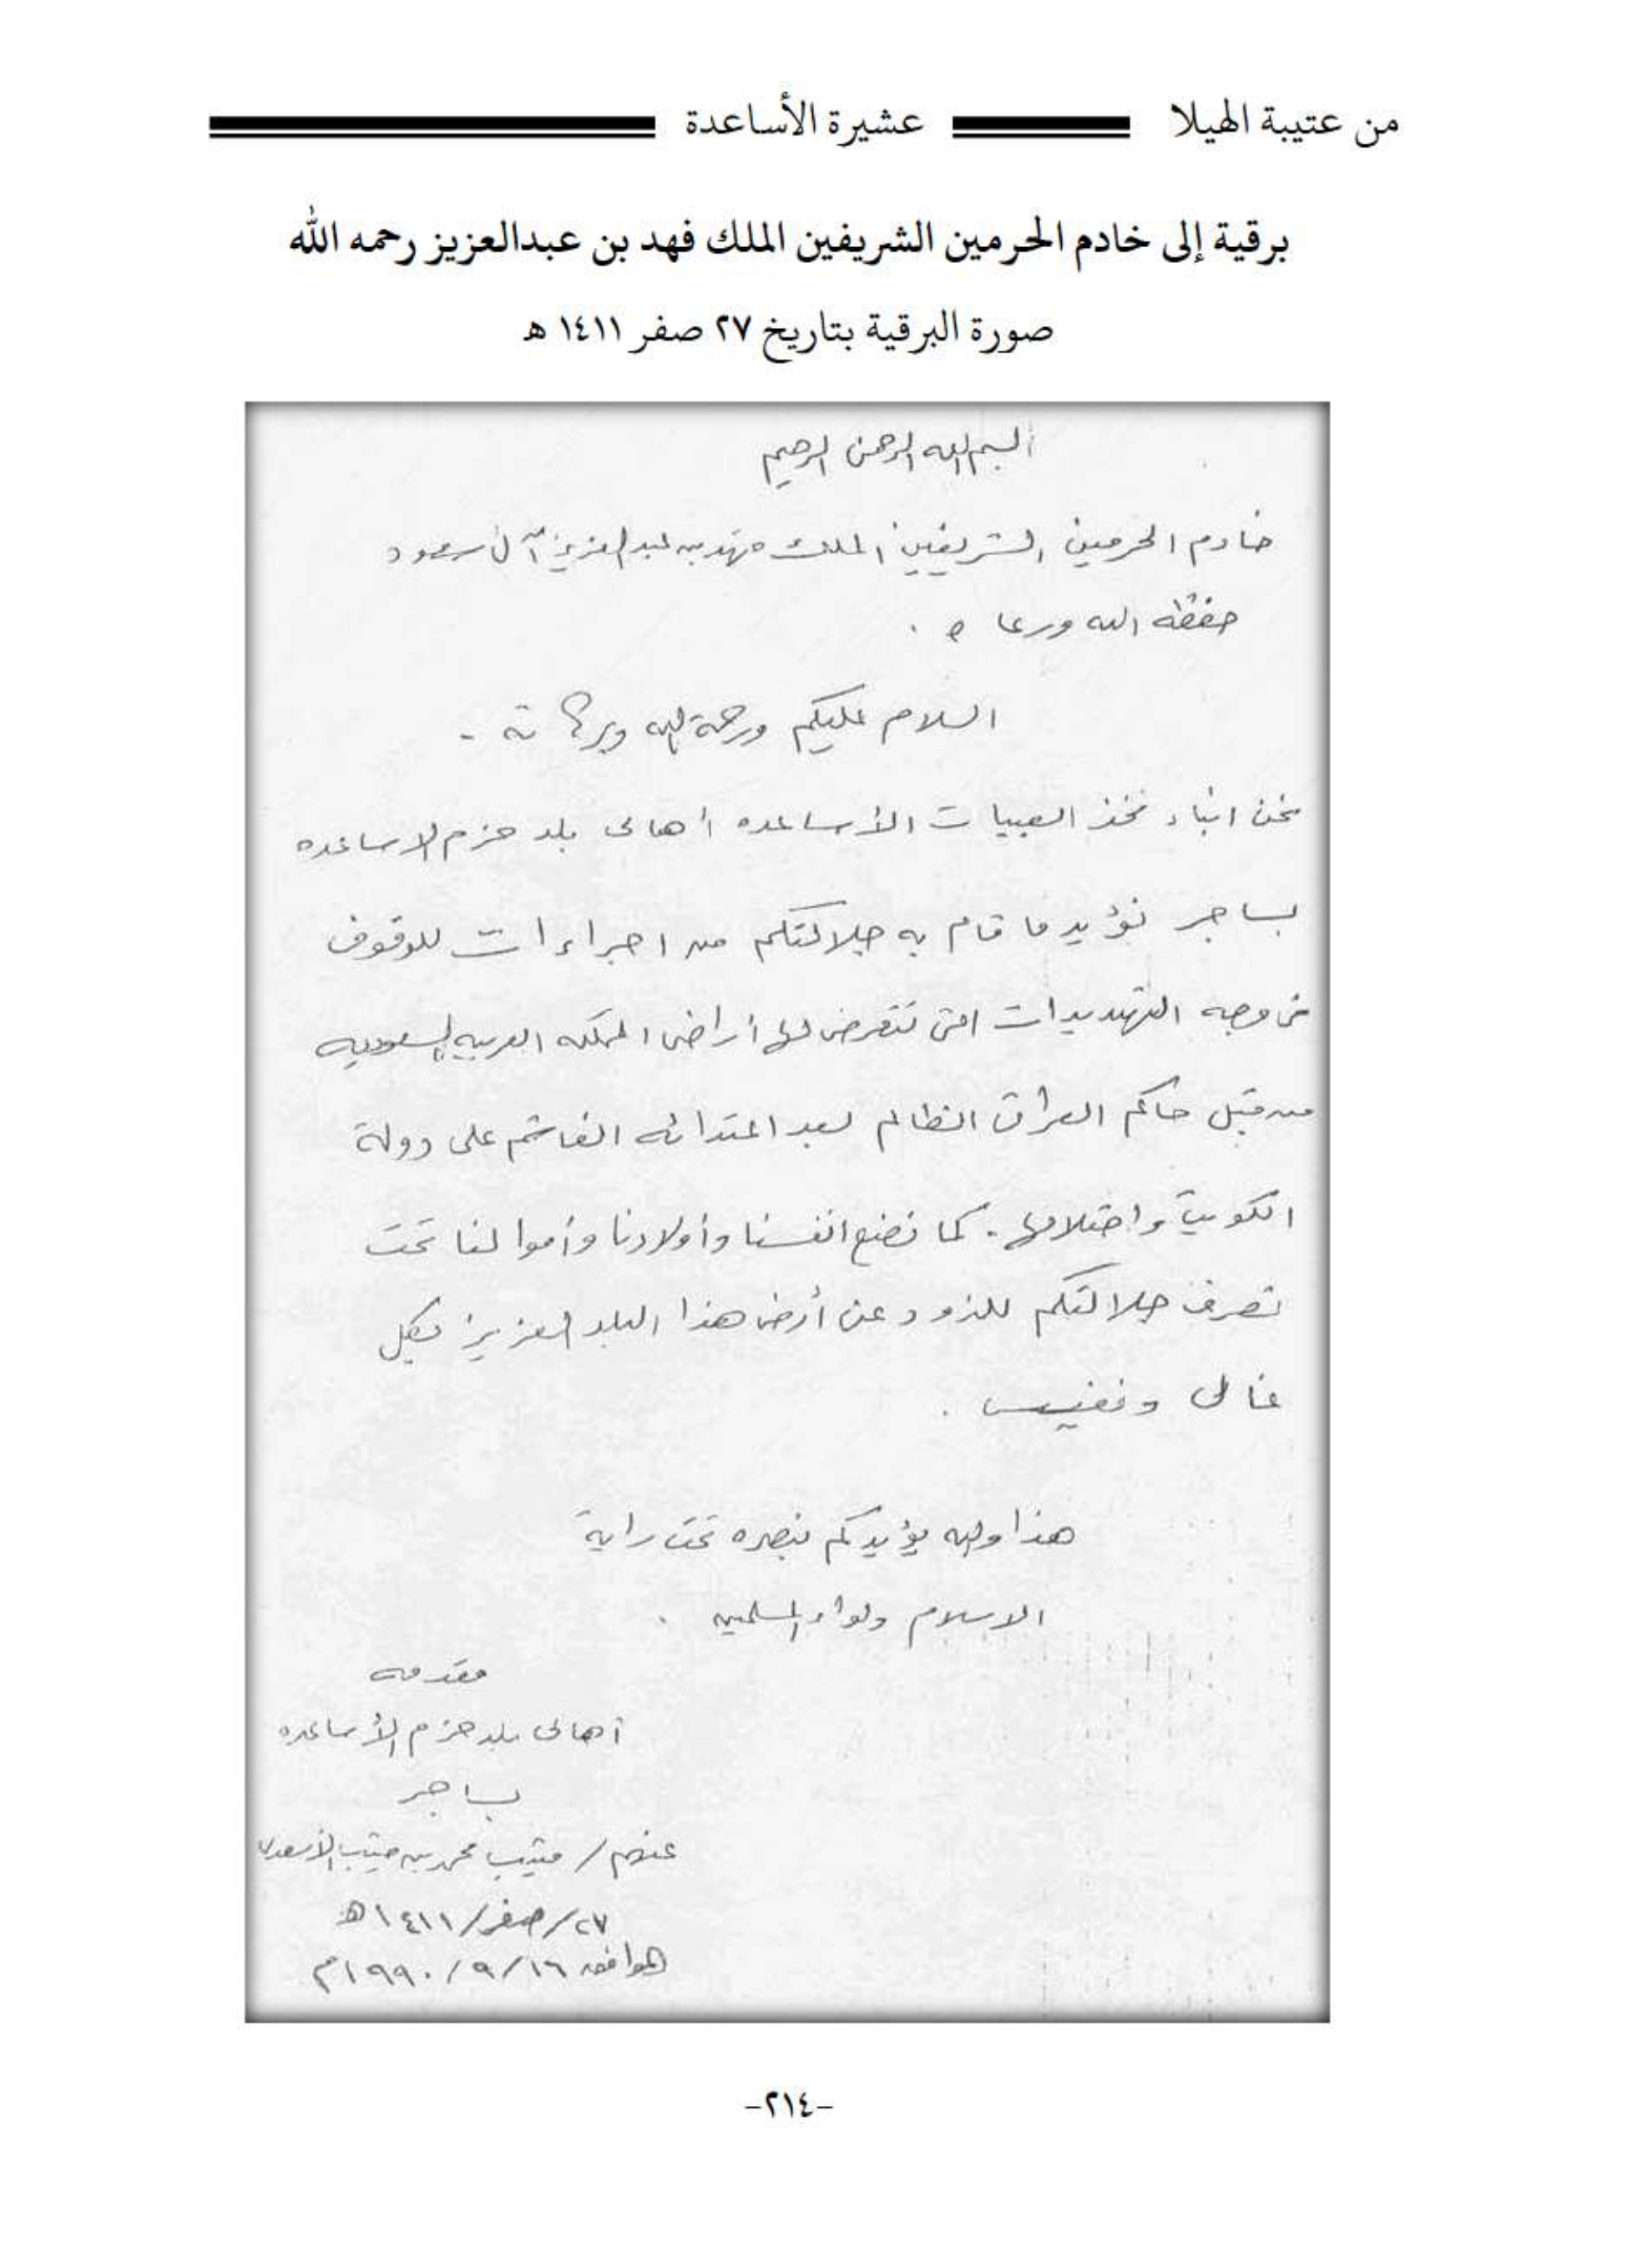 من عتيبة الهيلا عشيرة الأساعدة
برقية إلى خادم الحرمين الشريفين الملك فهد بن عبدالعزيز رحمه الله
صورة البرقية بتاريخ ٢٧ صفر ١٤١١ هـ
البسم الله الرحمن الرحيم
خادم الحرمين الشريفين الملك فهد بن عبد العزيز آل سعود
حفظه الله ورعاه .
السلام عليكم ورحمة الله وبركاته -
نحن ابناء فخذ العبيات الأساعده أهالى بلد حزم الاساعده
بساجر نؤيد ما قام به جلالتكم من اجراءات للوقوف
فى وجه التهديدات التى تتعرض لها أراضى المملكه العربيه السعوديه
من قبل حاكم العراق الظالم بعد اعتدائه الغاشم على دولة
الكويت واحتلالها . كما نضع انفسنا وأولادنا وأموالنا تحت
تصرف جلالتكم للذود عن أرض هذا البلد العزيز بكل
غالى ونفيس .
هذا والله يؤيدكم بنصره تحت راية
الاسلام ولواء المسلمين .
مقدمه
أهالى بلد حزم الأساعده
بساجر
عنهم / محمد بن الأسعدى
٢٧/صفر/١٤١١هـ
الموافق ١٦/٩/١٩٩٠م
-٢١٤-